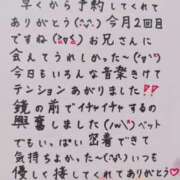 早くから予約してくれて
ありがとう(^.^) 今月2回目
ですね(≧▽≦) お兄さんに
会えてうれしかった~(*^^*)
今日もいろんな音楽きけて
テンションあがりました!!
鏡の前でイチャイチャするの
興奮しました(/ω\)ベット
でもいっぱい密着できて
気持ちよかった~(^^) いつも
優しく接してくれてありがとう♡